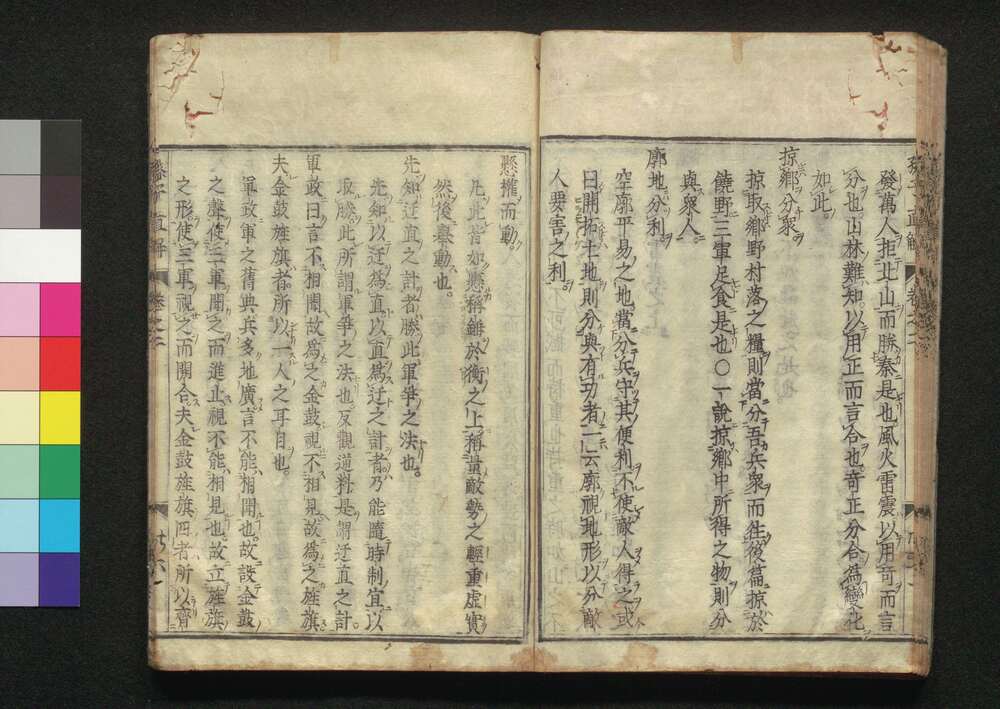 發萬人拒北山而勝秦是也風火雷震以用奇而言
分也山林難知以用正而言合也奇正分合爲變化
如此
掠鄉分衆
掠取鄉野村落之糧則當分吾兵衆而往後篇掠於
饒野三軍足食是也〇一說掠鄉中所得之物則分
與衆人
廓地分利
空廓平易之地當分兵守其便利不使敵人得之或
曰開拓土地則分與有功者一云廓視地形以分敵
人要害之利
懸權而動
凡此皆如懸稱錘於衡之上稱量敵勢之輕重虛實
然後擧動也
先知迂直之計者勝此軍爭之法也
先知以迂爲直以直爲迂之計者乃能隨時制宜以
取勝此所謂軍爭之法也反觀道料是謂迂直之計
軍政曰言不相聞故爲之金鼓視不相見故爲之旌旗
夫金鼓旌旗者所以一人之耳目也
軍政軍之舊典兵多地廣言不能相聞也故設金鼓
之聲使三軍聞之而進止視不能相見也故立旌旗
之形使三軍視之而開合夫金鼓旌旗四者所以齊
孫子直解 卷之二